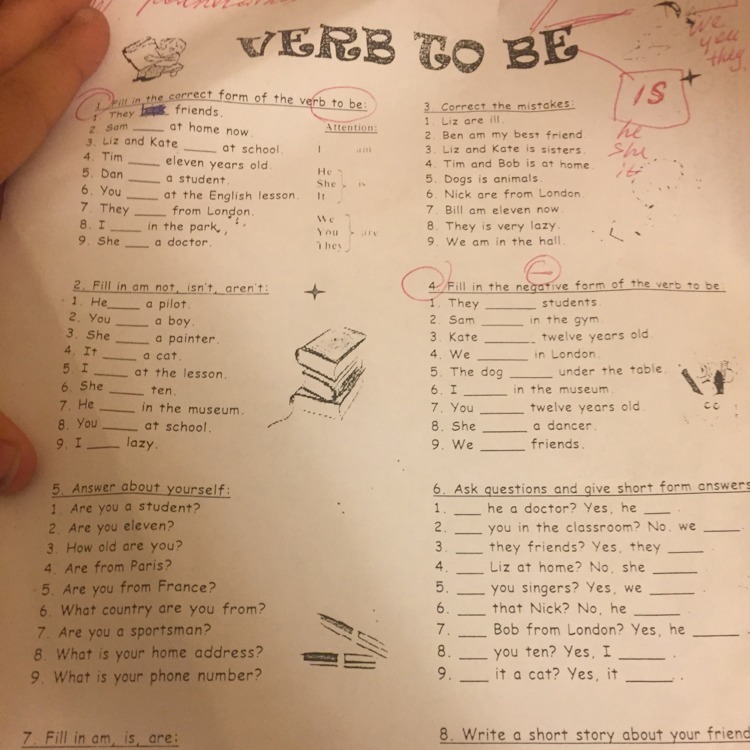 VERB TO BE
We
you
they
IS
he
she
it
1 Fill in the correct form of the verb to be:
1 They friends.
2 Sam ____ at home now.
3. Liz and Kate ____ at school.
4. Tim ____ eleven years old.
5. Dan ____ a student.
6. You ____ at the English lesson.
7. They ____ from London.
8. I ____ in the park.
9. She ____ a doctor.
Attention:
I am
He
She is
It
We
You are
They
3 Correct the mistakes:
1 Liz are ill.
2. Ben am my best friend
3. Liz and Kate is sisters.
4. Tim and Bob is at home.
5. Dogs is animals.
6. Nick are from London.
7. Bill am eleven now.
8. They is very lazy.
9. We am in the hall.
2. Fill in am not, isn't, aren't:
1. He____ a pilot.
2. You ____ a boy.
3. She ____ a painter.
4. It ____ a cat.
5. I ____ at the lesson.
6. She ____ ten.
7. He ____ in the museum.
8. You ____ at school.
9. I ____ lazy.
4. Fill in the negative form of the verb to be:
1. They ____ students.
2. Sam ____ in the gym.
3. Kate ____ twelve years old.
4. We ____ in London.
5. The dog ____ under the table.
6. I ____ in the museum.
7. You ____ twelve years old.
8. She ____ a dancer.
9. We ____ friends.
5. Answer about yourself:
1. Are you a student?
2. Are you eleven?
3. How old are you?
4. Are from Paris?
5. Are you from France?
6. What country are you from?
7. Are you a sportsman?
8. What is your home address?
9. What is your phone number?
6. Ask questions and give short form answers
1. ____ he a doctor? Yes, he ____.
2. ____ you in the classroom? No, we ____.
3. ____ they friends? Yes, they ____
4. ____ Liz at home? No, she ____
5. ____ you singers? Yes, we ____
6. ____ that Nick? No, he ____.
7. ____ Bob from London? Yes, he ____.
8. ____ you ten? Yes, I ____.
9. ____ it a cat? Yes, it ____.
7. Fill in am, is, are:
8. Write a short story about your friend